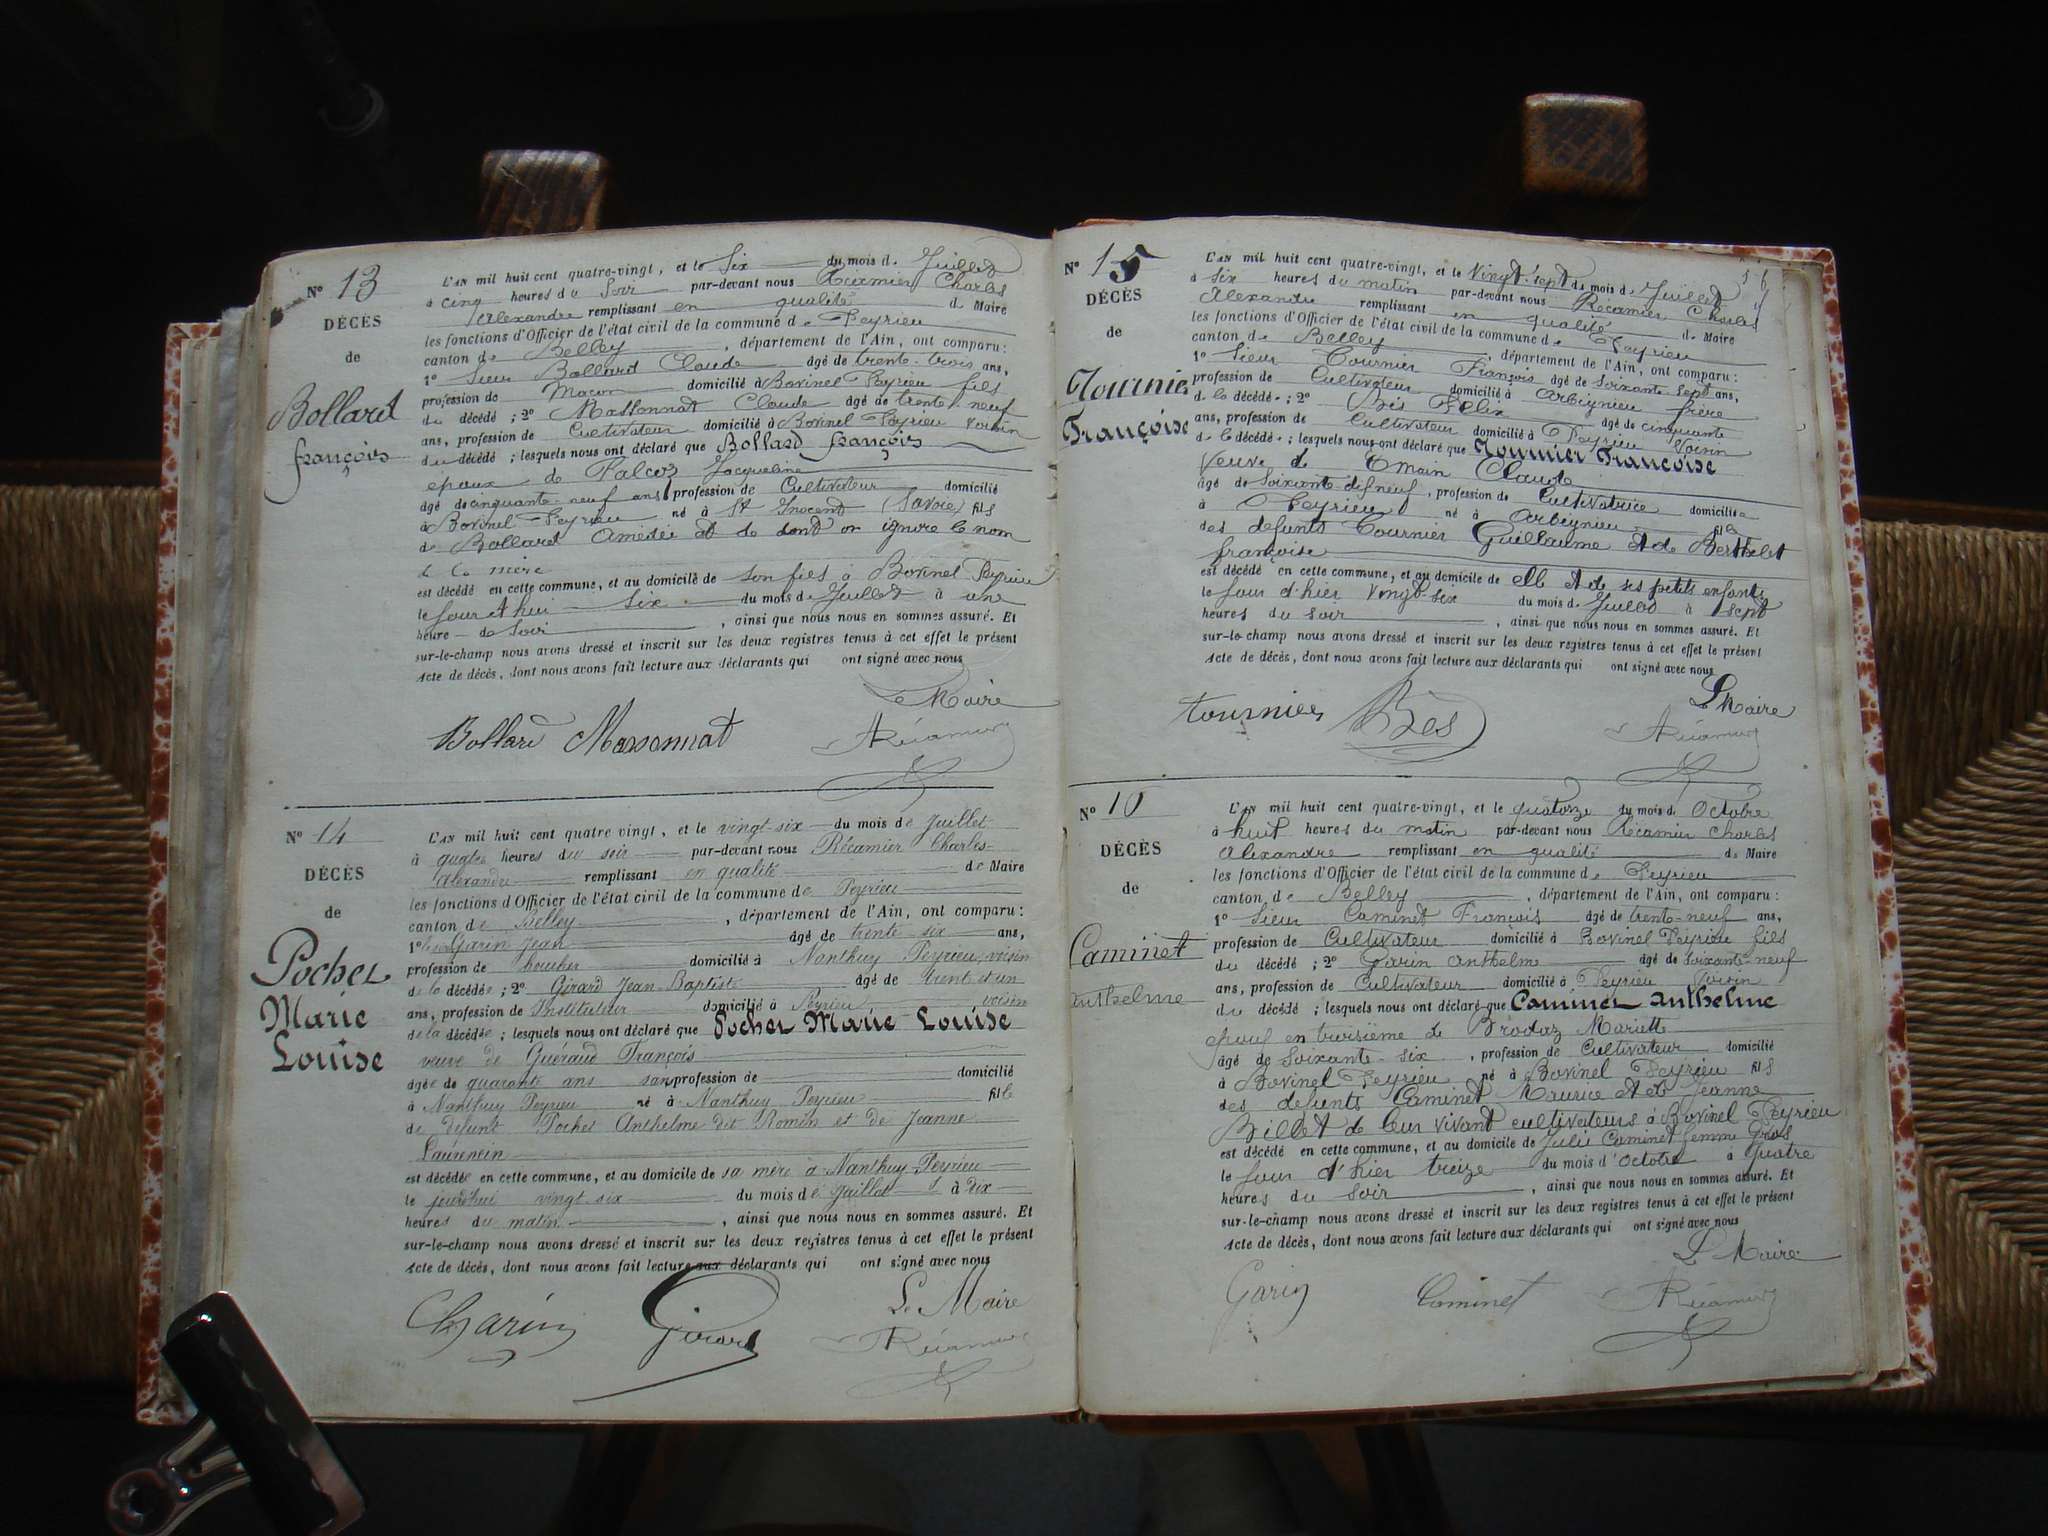 N° 13
DÉCÈS
de
Bollard
françois
L'AN mil huit cent quatre-vingt, et le Six du mois de Juillet
à cinq heures du Soir par-devant nous Récamier Charles
Alexandre remplissant en qualité de Maire
les fonctions d'Officier de l'état civil de la commune de Peyrieu
canton de Belley, département de l'Ain, ont comparu :
1° Sieur Bollard Claude âgé de trente-trois ans,
profession de Maçon domicilié à Bovinel Peyrieu fils
du décédé ; 2° Massonnat Claude âgé de trente neuf
ans, profession de Cultivateur domicilié à Bovinel Peyrieu voisin
du décédé ; lesquels nous ont déclaré que Bollard françois
epoux de Falcoz Jacqueline
âgé de cinquante-neuf ans profession de Cultivateur domicilié
à Bovinel Peyrieu né à St Inocent (Savoie) fils
de Bollard Amédée et de dont on ignore le nom
de la mère
est décédé en cette commune, et au domicile de son fils à Bovinel Peyrieu
le jour d'hui Six du mois de Juillet à une
heure de Soir, ainsi que nous nous en sommes assuré. Et
sur-le-champ nous avons dressé et inscrit sur les deux registres tenus à cet effet le présent
Acte de décès, dont nous avons fait lecture aux déclarants qui ont signé avec nous
Le Maire
Bollard Massonnat Récamier
N° 14
DÉCÈS
de
Pochet
Marie
Louise
L'AN mil huit cent quatre vingt, et le vingt-six du mois de Juillet
à quatre heures du soir par-devant nous Récamier Charles
Alexandre remplissant en qualité de Maire
les fonctions d'Officier de l'état civil de la commune de Peyrieu
canton de Belley, département de l'Ain, ont comparu :
1° Garin Jean âgé de trente-six ans,
profession de domicilié à Nanthuy Peyrieu voisin
de la décédée ; 2° Girard Jean-Baptiste âgé de trent et un
ans, profession de Instituteur domicilié à Peyrieu voisin
de la décédée ; lesquels nous ont déclaré que Pochet Marie Louise
veuve de Guéraud François
âgée de quarante ans sans profession de domicilié
à Nanthuy Peyrieu né à Nanthuy Peyrieu fille
de défunt Pochet Anthelme dit Romin et de Jeanne
Laurencin
est décédée en cette commune, et au domicile de sa mère à Nanthuy Peyrieu
le jourd'hui vingt six du mois de Juillet à dix
heures du matin, ainsi que nous nous en sommes assuré. Et
sur-le-champ nous avons dressé et inscrit sur les deux registres tenus à cet effet le présent
Acte de décès, dont nous avons fait lecture aux déclarants qui ont signé avec nous
Le Maire
Girard Récamier
N° 15
DÉCÈS
de
Tournier
Françoise
L'AN mil huit cent quatre-vingt, et le Vingt-sept du mois de Juillet
à six heures du matin par-devant nous Récamier Charles
Alexandre remplissant en qualité de Maire
les fonctions d'Officier de l'état civil de la commune de Peyrieu
canton de Belley, département de l'Ain, ont comparu :
1° Sieur Tournier François âgé de Soixante-sept ans,
profession de Cultivateur domicilié à Arbignieu frère
de la décédée ; 2° Bès Félix âgé de cinquante
ans, profession de Cultivateur domicilié à Peyrieu Voisin
de la décédée ; lesquels nous ont déclaré que Tournier Françoise
Veuve de Emain Claude
âgé de Soixante-dix neuf, profession de Cultivatrice domiciliée
à Peyrieu né à Arbeynieu fille
des defunts Tournier Guillaume et de Berthelet
françoise
est décédé en cette commune, et au domicile de Elle et de ses petits enfants
le jour d'hier Vingt-six du mois de Juillet à sept
heures du soir, ainsi que nous nous en sommes assuré. Et
sur-le-champ nous avons dressé et inscrit sur les deux registres tenus à cet effet le présent
Acte de décès, dont nous avons fait lecture aux déclarants qui ont signé avec nous
Le Maire
tournier Bès Récamier
N° 16
DÉCÈS
de
Caminet
Anthelme
L'AN mil huit cent quatre-vingt, et le quatorze du mois d'Octobre
à huit heures du matin par-devant nous Récamier Charles
Alexandre remplissant en qualité de Maire
les fonctions d'Officier de l'état civil de la commune de Peyrieu
canton de Belley, département de l'Ain, ont comparu :
1° Sieur Caminet François âgé de trente-neuf ans,
profession de Cultivateur domicilié à Bovinel Peyrieu fils
du décédé ; 2° Garin Anthelme âgé de soixante-neuf
ans, profession de Cultivateur domicilié à Peyrieu Voisin
du décédé ; lesquels nous ont déclaré que Caminet Anthelme
epoux en troisième de Brodaz Mariette
âgé de Soixante-six, profession de Cultivateur domicilié
à Bovinel Peyrieu né à Bovinel Peyrieu fils
des défunts Caminet Maurice et de Jeanne
Billet de leur vivant cultivateurs à Bovinel Peyrieu
est décédé en cette commune, et au domicile de Julie Caminet femme Gros
le jour d'hier treize du mois d'Octobre à quatre
heures du Soir, ainsi que nous nous en sommes assuré. Et
sur-le-champ nous avons dressé et inscrit sur les deux registres tenus à cet effet le présent
Acte de décès, dont nous avons fait lecture aux déclarants qui ont signé avec nous
Le Maire
Garin Caminet Récamier